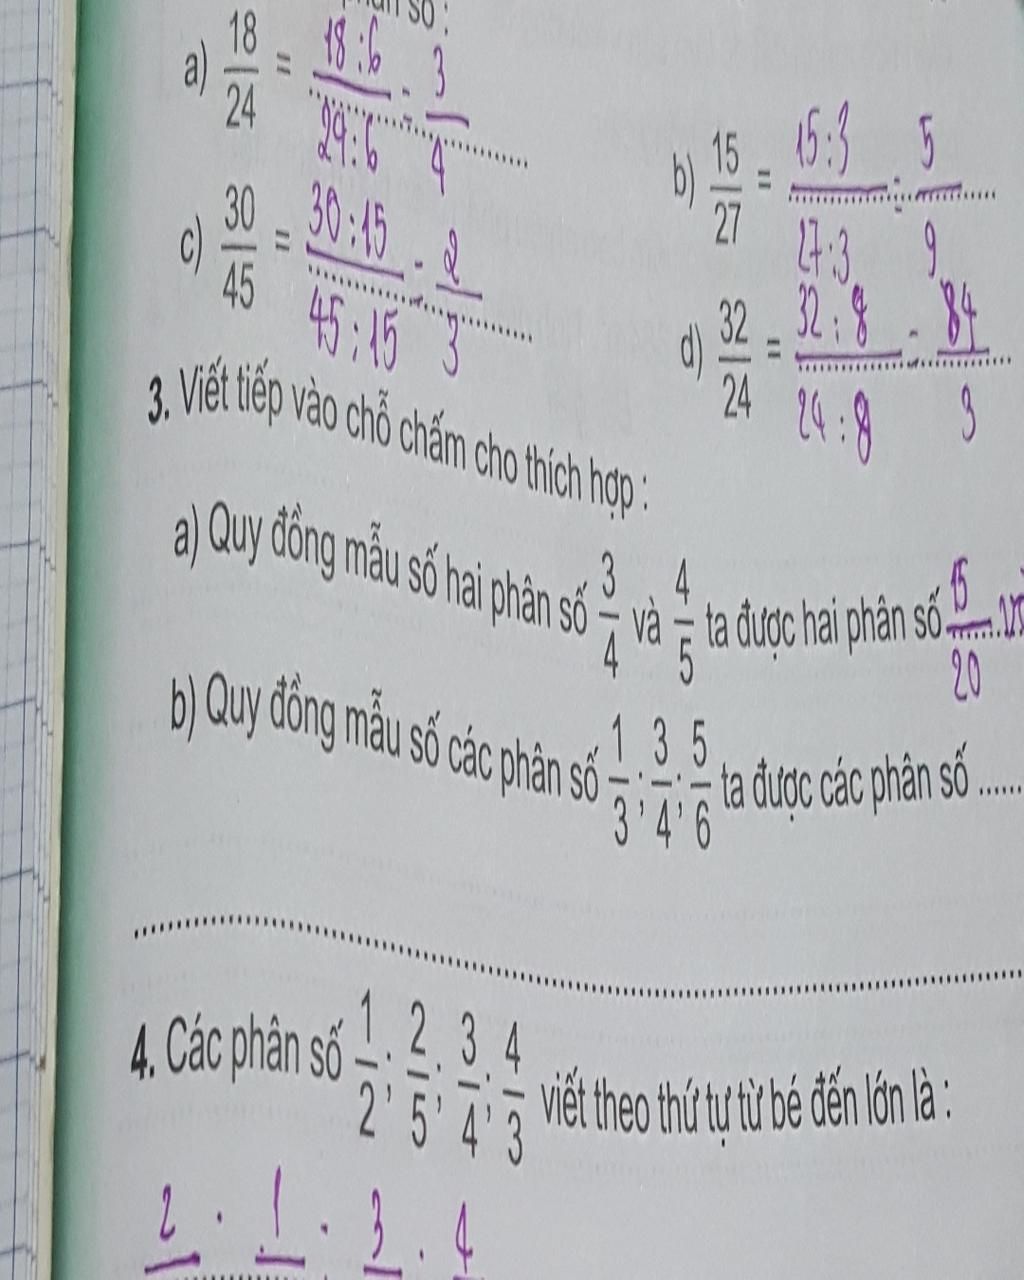 số :
a) 18/24 = 18:6/24:6 = 3/4
b) 15/27 = 15:3/27:3 = 5/9
c) 30/45 = 30:15/45:15 = 2/3
d) 32/24 = 32:8/24:8 = 4/3
3. Viết tiếp vào chỗ chấm cho thích hợp :
a) Quy đồng mẫu số hai phân số 3/4 và 4/5 ta được hai phân số 15/20
b) Quy đồng mẫu số các phân số 1/3 ; 3/4 ; 5/6 ta được các phân số ......
4. Các phân số 1/2 ; 2/5 ; 3/4 ; 4/3 viết theo thứ tự từ bé đến lớn là :
2 . 1 . 3 . 4